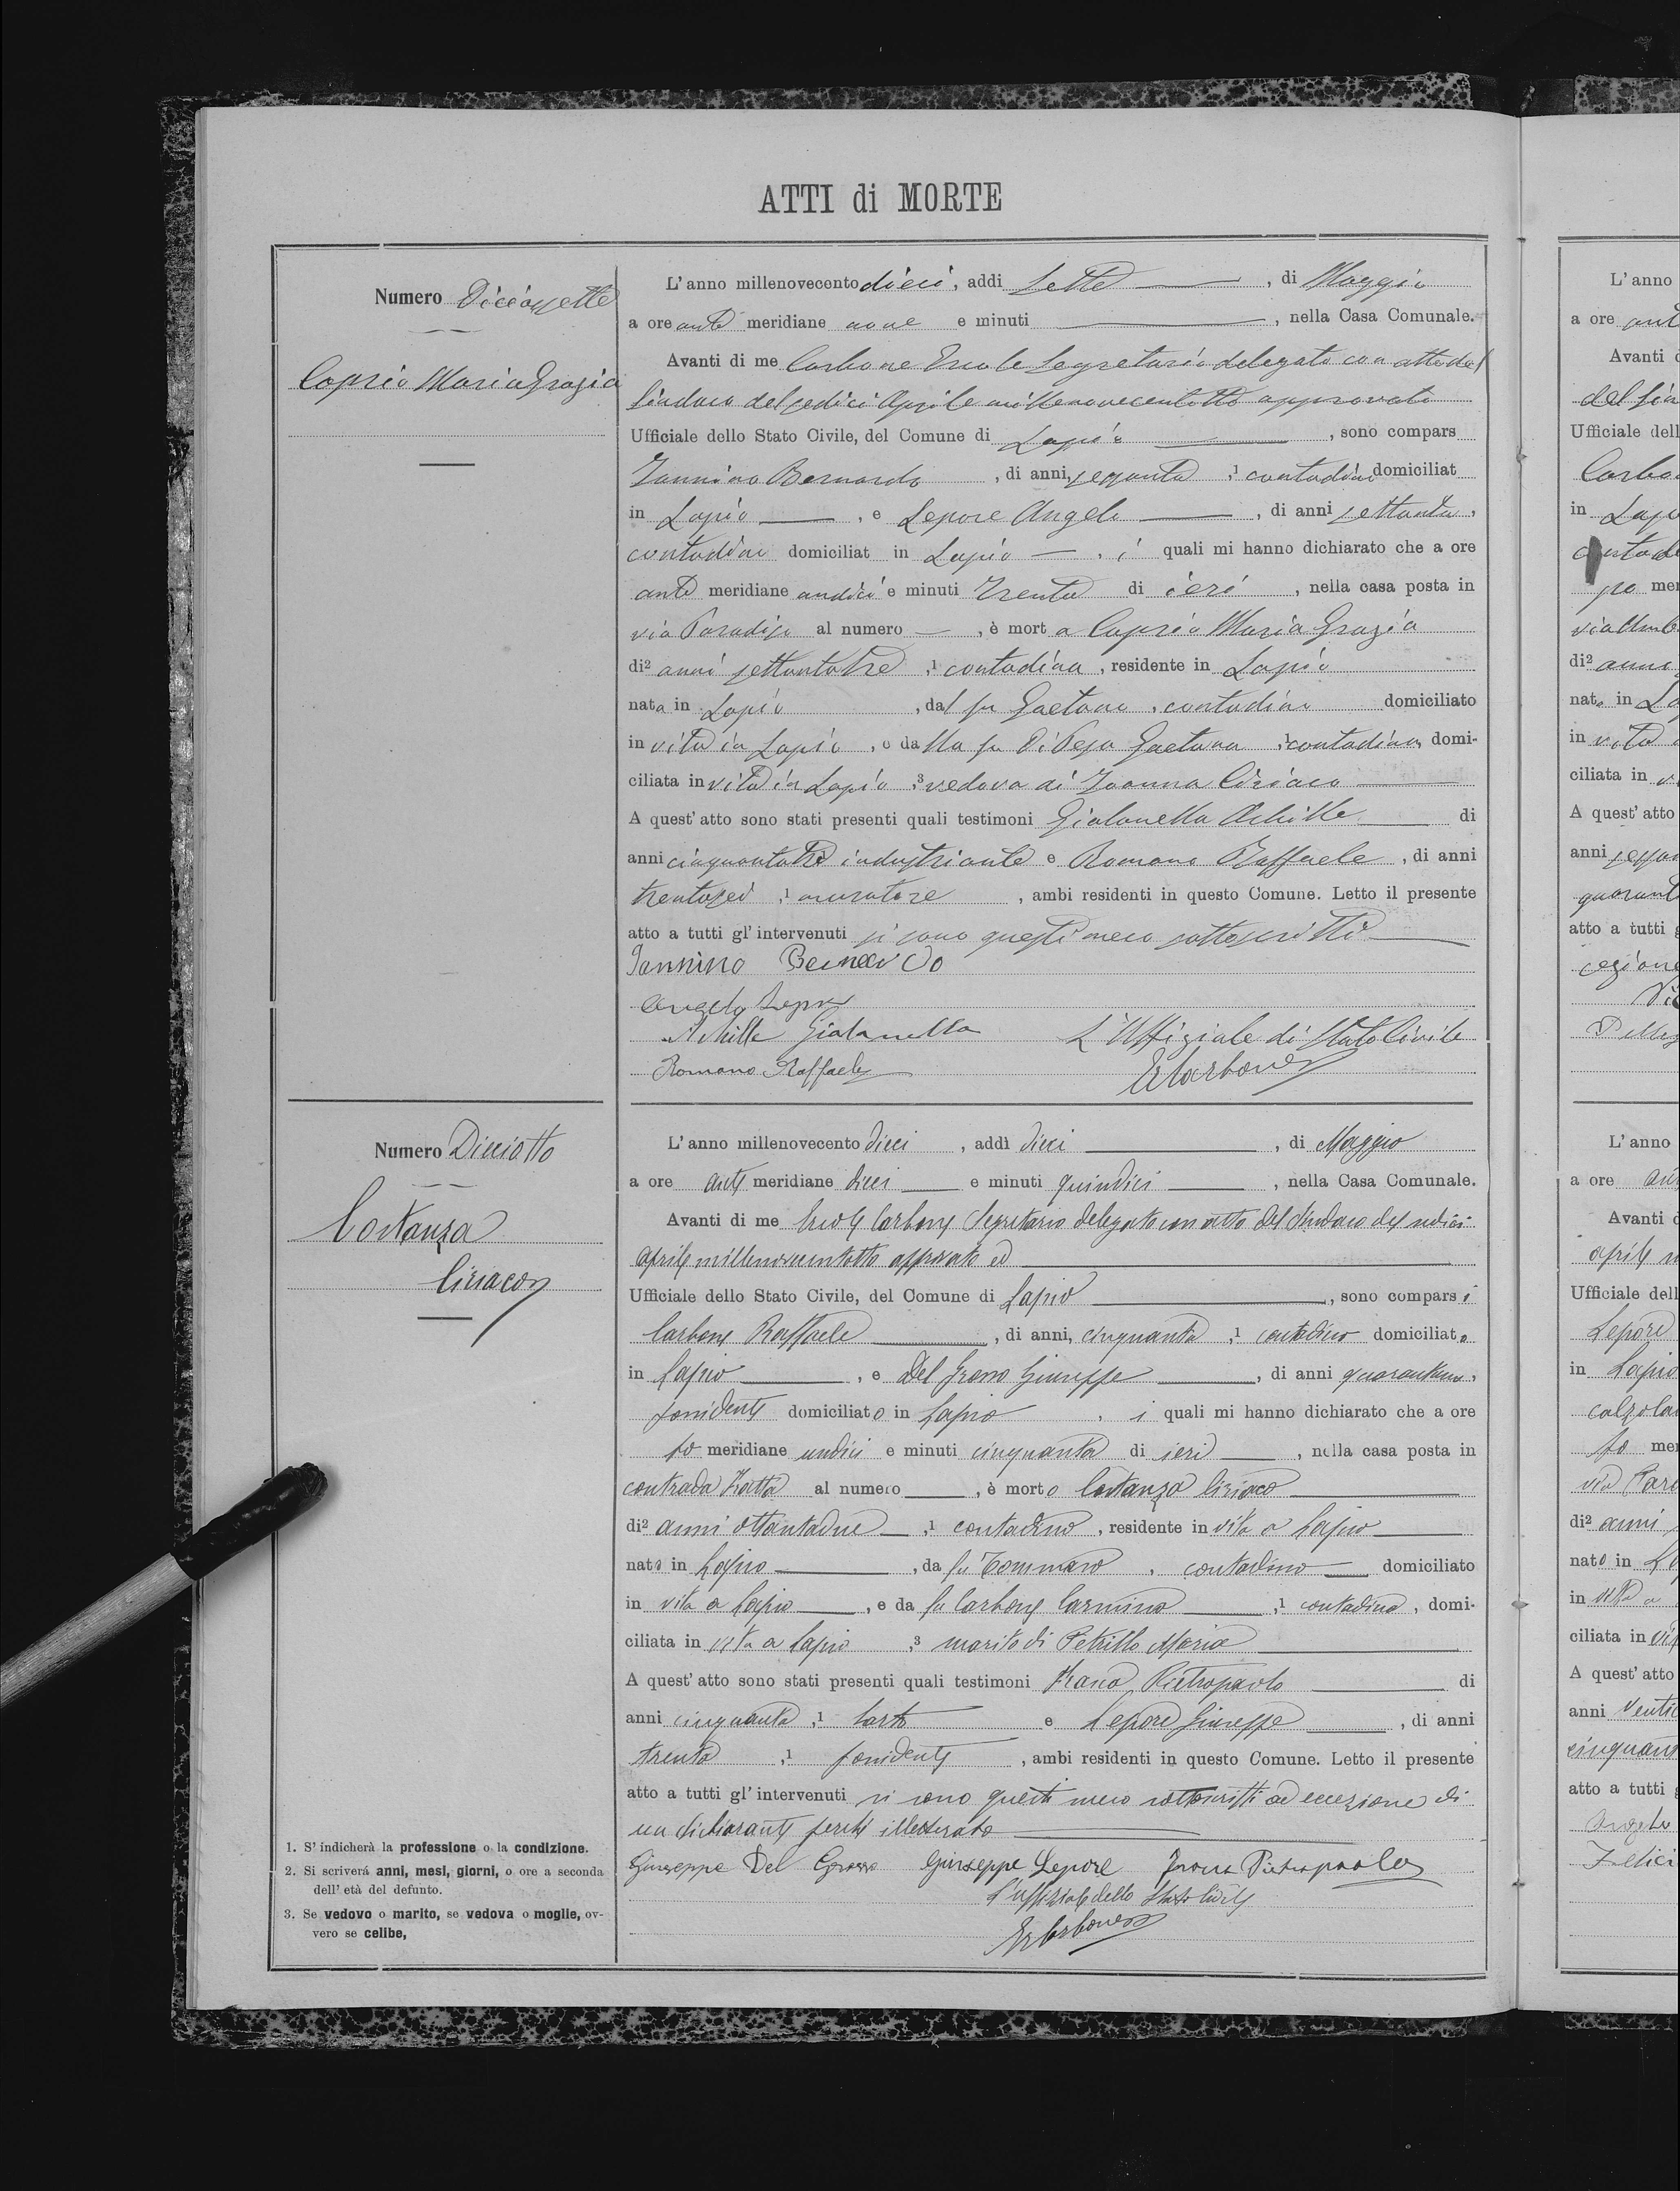 ATTI di MORTE
Numero Diciassette
Caprio Maria Grazia
L'anno millenovecento dieci, addì Sette, di Maggio
a ore ante meridiane nove e minuti, nella Casa Comunale.
Avanti di me Carbone Ercole Segretario delegato con atto del
Sindaco del sedici Aprile millenovecentotto approvato
Ufficiale dello Stato Civile, del Comune di Lapio, sono compars
Iannino Bernardo, di anni sessanta, 1 contadino domiciliat
in Lapio, e Lepore Angelo, di anni settanta,
contadino domiciliat in Lapio, i quali mi hanno dichiarato che a ore
ante meridiane undici e minuti trenta di ieri, nella casa posta in
via Paradiso al numero, è mort a Caprio Maria Grazia
di2 anni settantatre, 1 contadina, residente in Lapio
nata in Lapio, dal fu Gaetano, contadino domiciliato
in vita in Lapio, e dalla fu Gaetana, 1 contadina, domi-
ciliata in vita in Lapio, 3 vedova di Ioanna Ciriaco
A quest'atto sono stati presenti quali testimoni Gialanella Achille di
anni cinquantatre industriante e Romano Raffaele, di anni
trentasei, 1 muratore, ambi residenti in questo Comune. Letto il presente
atto a tutti gl'intervenuti si sono questi meco sottoscritti
Iannino Bernardo
Angelo Lepore
Achille Gialanella L'Uffiziale di Stato Civile
Romano Raffaele ECarbone
Numero Diciotto
Costanza
Ciriaco
L'anno millenovecento dieci, addì dieci, di Maggio
a ore ante meridiane dieci e minuti quindici, nella Casa Comunale.
Avanti di me Ercole Carbone Segretario delegato con atto del Sindaco del sedici
aprile millenovecentotto approvato ed
Ufficiale dello Stato Civile, del Comune di Lapio, sono compars i
Carbone Raffaele, di anni, cinquanta, 1 contadino domiciliato
in Lapio, e Del Grosso Giuseppe, di anni quarantuno,
possidente domiciliato in Lapio, i quali mi hanno dichiarato che a ore
po meridiane undici e minuti cinquanta di ieri, nella casa posta in
contrada Tratta al numero, è morto Costanza Ciriaco
di2 anni ottantadue, 1 contadino, residente in vita a Lapio
nato in Lapio, da fu Tommaso, contadino domiciliato
in vita a Lapio, e da fu Carbone Carmina, 1 contadina, domi-
ciliata in vita a Lapio, 3 marito di Petrillo Maria
A quest'atto sono stati presenti quali testimoni Pietropaolo di
anni cinquanta, 1 sarto e Lepore Giuseppe, di anni
trenta, 1 possidente, ambi residenti in questo Comune. Letto il presente
atto a tutti gl'intervenuti si sono questi meco sottoscritti ad eccezione di
un dichiarante perchè illetterato
Giuseppe Del Grosso Giuseppe Lepore Pietropaolo
L'uffiziale dello Stato Civile
ECarbone
1. S'indicherà la professione o la condizione.
2. Si scriverá anni, mesi, giorni, o ore a seconda
dell'età del defunto.
3. Se vedovo o marito, se vedova o moglie, ov-
vero se celibe,
L'anno
a ore
Avanti
Ufficiale dell
in Lapio
di2 anni
nato in
in vita
ciliata in
A quest'atto
anni
atto a tutti
L'anno
a ore
Avanti
aprile
Ufficiale dell
Lepore
in Lapio
po mer
di2 anni
nato in
in vita a
ciliata in
A quest'atto
anni
atto a tutti
Angelo